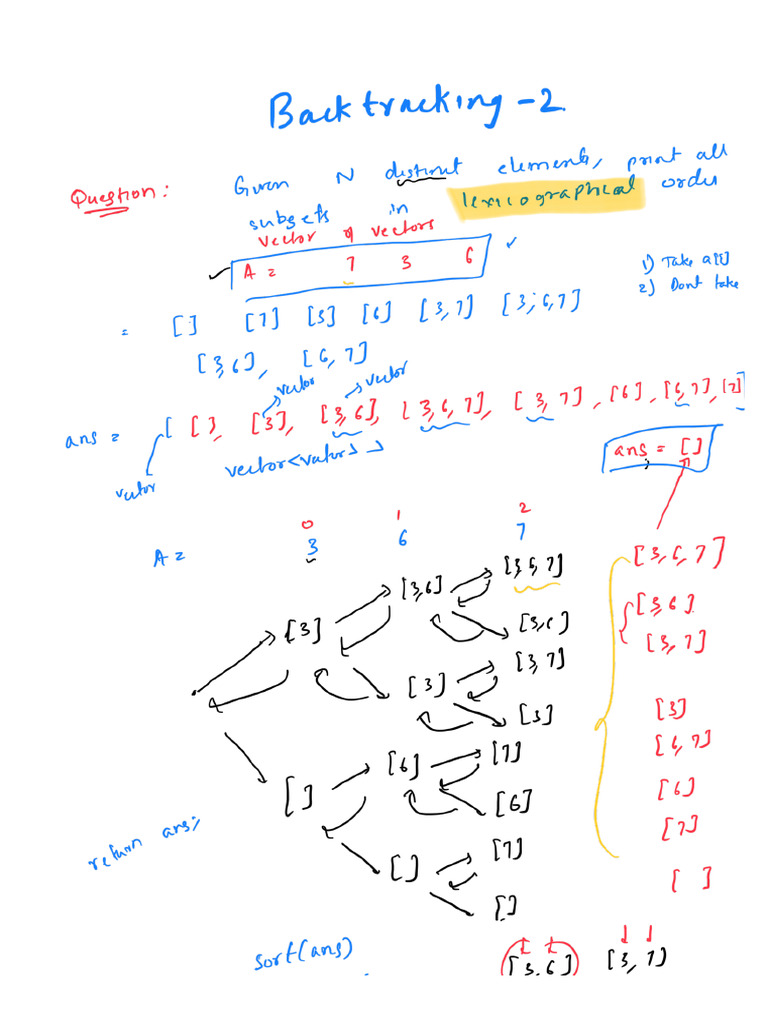 Backtracking -2
Question: Given N distinct elements, print all
subsets in lexicographical order
vector of vectors
A = 7 3 6
1) Take a[i]
2) Dont take
= [] [7] [3] [6] [3,7] [3,6,7]
[3,6], [6,7]
vector vector
ans = [ [], [3], [3,6], [3,6,7], [3,7], [6], [6,7], [7]]
vector vector<vector>
ans = []
0 1 2
A = 3 6 7
[3,6,7] [3,6,7]
[3,6]
[3,6]
[3] [3,6] [3,7]
[3,7]
[3]
[3] [3]
[6,7]
[7]
[6]
[] [6] [6]
[7]
return ans; [7]
[] [ ]
[]
sort(ans) [3,6] [3,7]